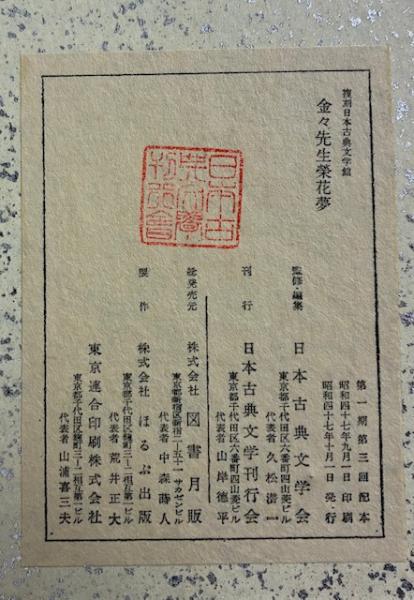 複刻日本古典文学館
金々先生榮花夢
第一期第三回配本
昭和四十七年九月一日印刷
昭和四十七年十月一日発行
監修・編集 日本古典文学会
東京都千代田区六番町四山菱ビル
代表者 久松潜一
刊行 日本古典文学刊行会
東京都千代田区六番町四山菱ビル
代表者 山岸徳平
総発売元 株式会社 図書月販
東京都新宿区新宿一ノ五ノ一 サカゼンビル
代表者 中森蒔人
製作 株式会社 ほるぷ出版
東京都千代田区麹町三ノ二相互第一ビル
代表者 荒井正大
東京連合印刷株式会社
東京都千代田区麹町三ノ二相互第一ビル
代表者 山浦喜三夫
日本古
典文學
刊行會